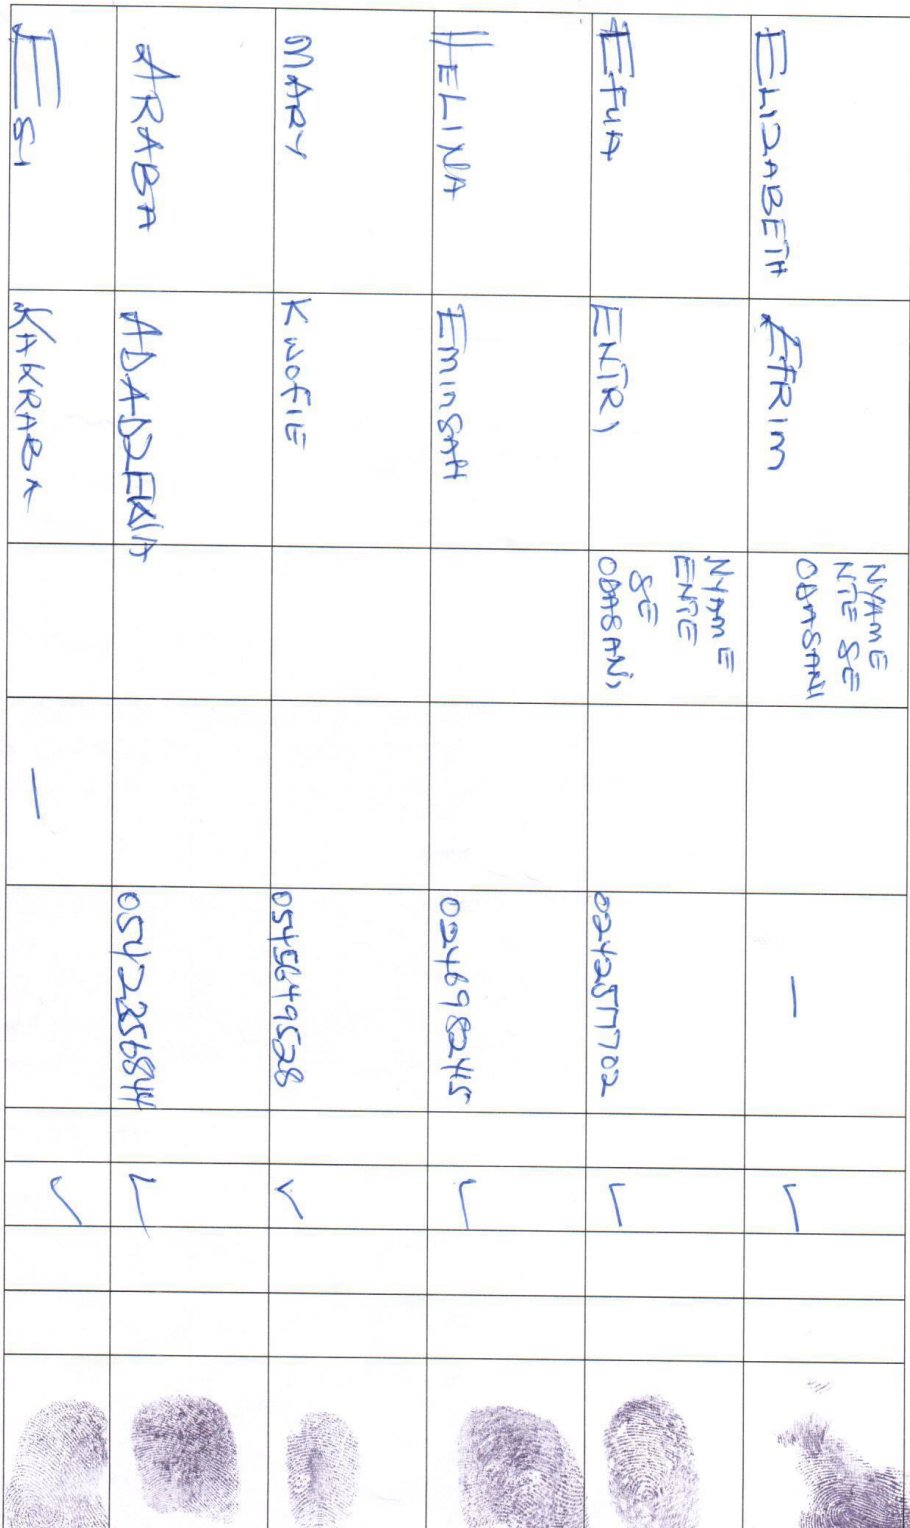 ELIZABETH EFRIM NYAME
NTE SE
OBASANI —
EFUA ENTRI NYAME
ENTE
SE
OBASANI 0242517702
HELINA EMINSAH 0246982415
MARY KWOFIE 0545649528
ARABA ADADZEWA 0542256844
ESI KAKRABA —